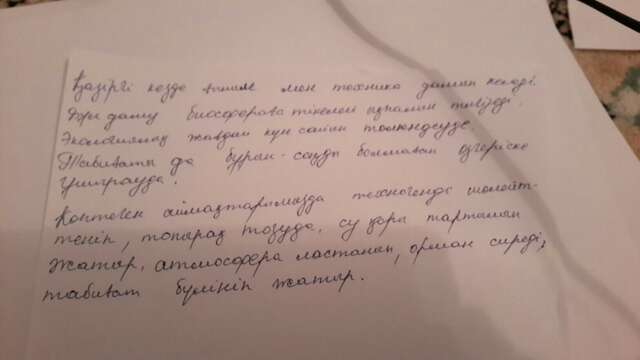 Қазіргі кезде ғылым мен техника дамып келеді.
Бұл даму биосфераға тікелей ықпалын тигізді.
Экологиялық жағдай күн санап төмендеуде.
Табиғаты да бұрын-соңды болмаған өзгеріске
ұшырауда.
Көптеген аймақтарымызда техногенді шөлейт-
теніп, топырақ тозуда, су қоры тартылып
жатыр, атмосфера ластанып, орман сиреді,
табиғат бүлініп жатыр.